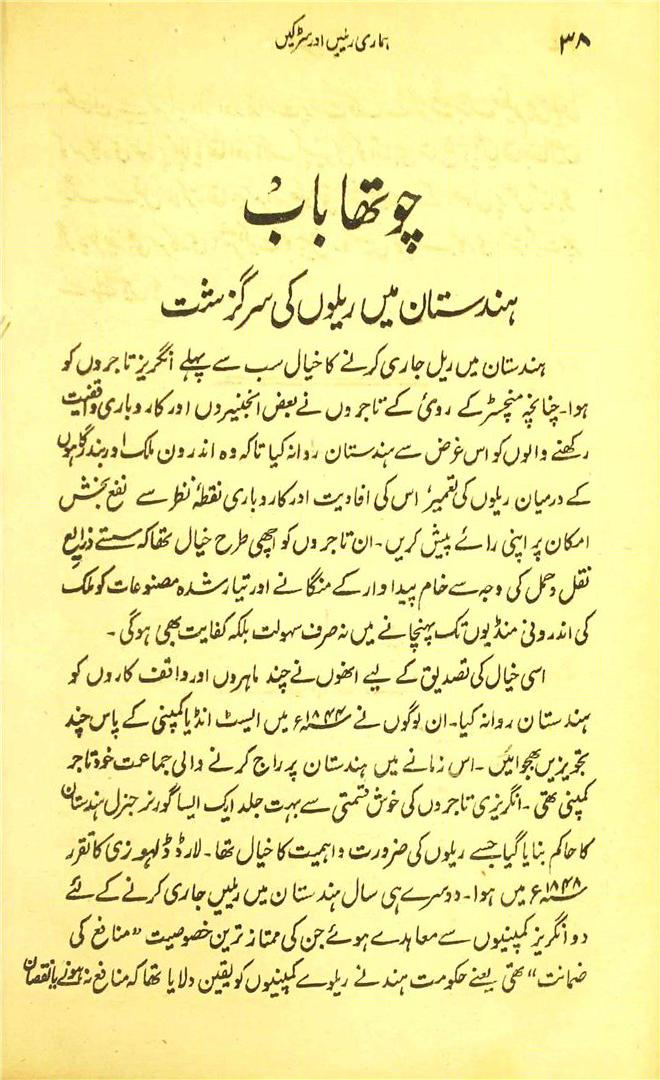 ۳۸
ہماری ریلیں اور سڑکیں
چوتھا باب
ہندستان میں ریلوں کی سرگزشت
ہندستان میں ریل جاری کرنے کا خیال سب سے پہلے انگریز تاجروں کو
ہوا۔ چنانچہ منچسٹر کے روئی کے تاجروں نے بعض انجنیروں اور کاروباری واقفیت
رکھنے والوں کو اس غرض سے ہندستان روانہ کیا تاکہ وہ اندرون ملک اور بندرگاہوں
کے درمیان ریلوں کی تعمیر، اس کی افادیت اور کاروباری نقطۂ نظر سے نفع بخش
امکان پر اپنی رائے پیش کریں۔ ان تاجروں کو اچھی طرح خیال تھا کہ سستے ذرایع
نقل و حمل کی وجہ سے خام پیداوار کے منگانے اور تیار شدہ مصنوعات کو ملک
کی اندرونی منڈیوں تک پہنچانے میں نہ صرف سہولت بلکہ کفایت بھی ہوگی۔
اسی خیال کی تصدیق کے لیے انھوں نے چند ماہروں اور واقف کاروں کو
ہندستان روانہ کیا۔ ان لوگوں نے ۱۸۴۴ء میں ایسٹ انڈیا کمپنی کے پاس چند
تجویزیں بھجوائیں۔ اس زمانے میں ہندستان پر راج کرنے والی جماعت خود تاجر
کمپنی تھی۔ انگریزی تاجروں کی خوش قسمتی سے بہت جلد ایک ایسا گورنر جنرل ہندستان
کا حاکم بنایا گیا جسے ریلوں کی ضرورت و اہمیت کا خیال تھا۔ لارڈ ڈلہوزی کا تقرر
۱۸۴۸ء میں ہوا۔ دوسرے ہی سال ہندستان میں ریلیں جاری کرنے کے لئے
دو انگریز کمپنیوں سے معاہدے ہوئے جن کی ممتاز ترین خصوصیت “منافع کی
ضمانت” تھی یعنے حکومت ہند نے ریلوے کمپنیوں کو یقین دلایا تھا کہ منافع نہ ہونے یا نقصان